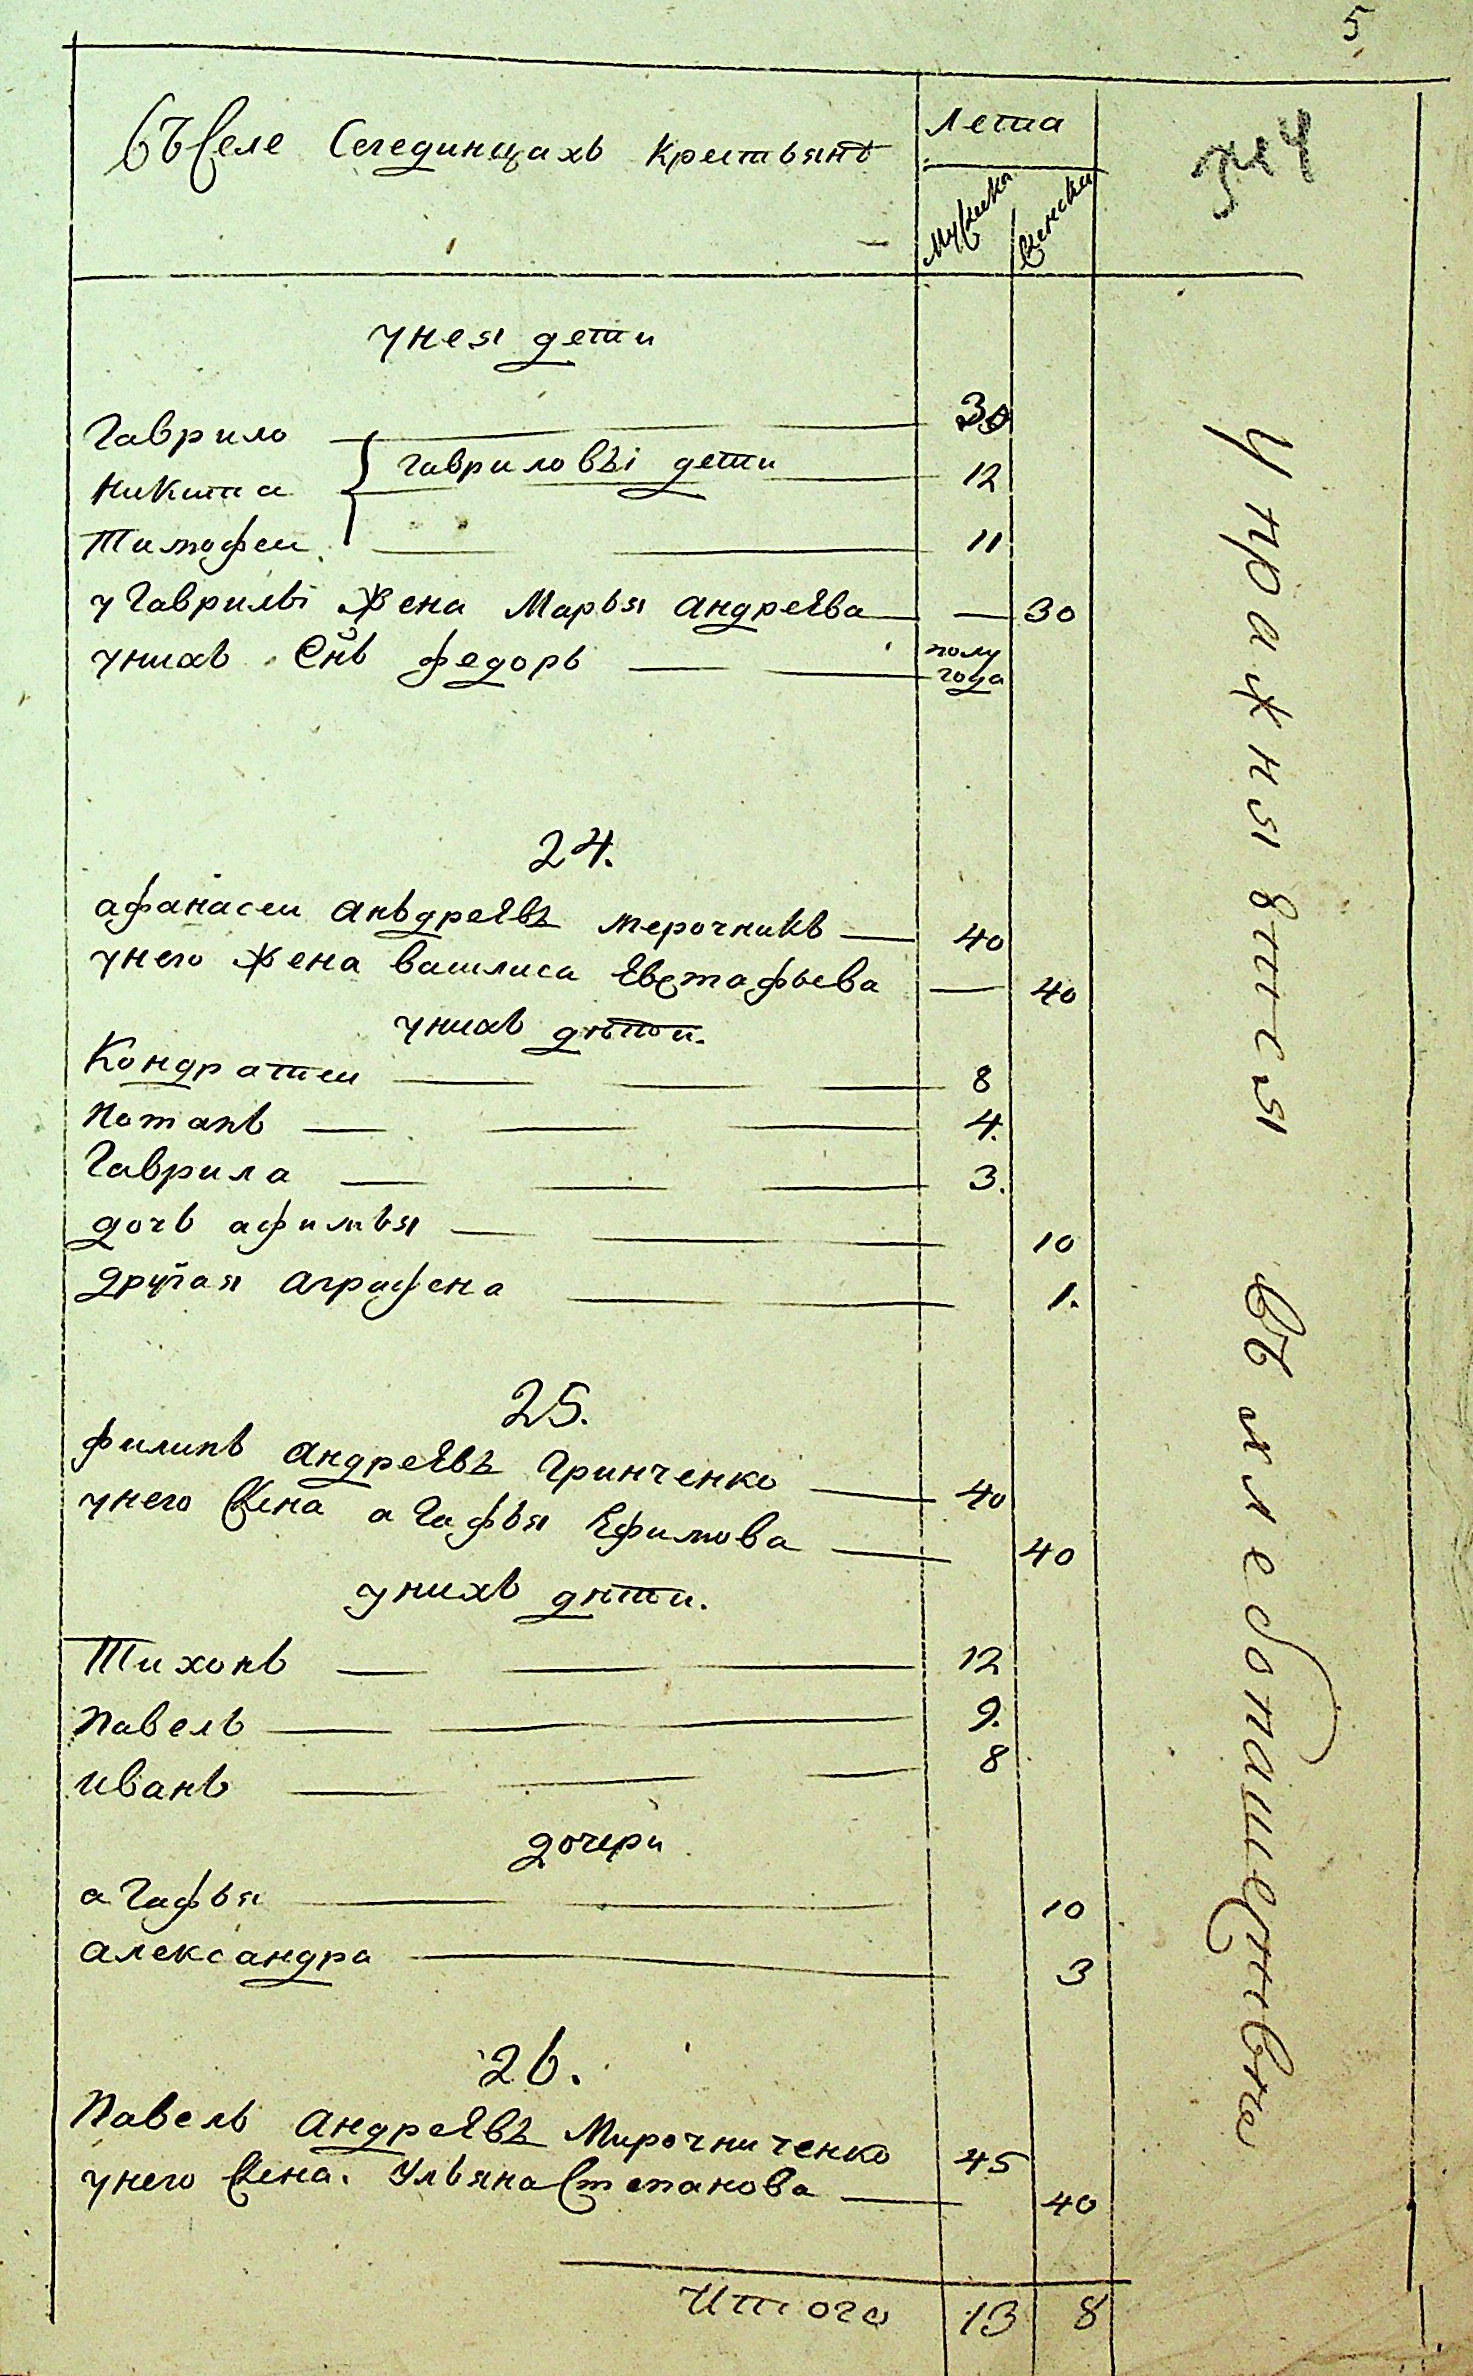 5
Въ Селе Сегединцахъ Крестьянъ
Лета
Мужска
Женска
унея дети
Гаврило 30
Никита 12
гавриловы дети
Тимофеи 11
у Гаврилы Жена Марья андреева 30
унихъ Снъ федоръ полу года
24.
афанасеи андреевъ мерочникъ 40
унего Жена василиса Евстафьева 40
унихъ дѣти.
Кондратеи 8
Потапъ 4.
Гаврила 3.
дочь афимья 10
другая аграфена 1.
25.
филипъ андреевъ Гринченко 40
унего Жена агафья Ефимова 40
унихъ дѣти.
Тихонъ 12
Павелъ 9.
иванъ 8
дочери
агафья 10
александра 3
26.
Павелъ андреевъ Мирочниченко 45
унего Жена. Ульяна Степанова 40
Итого 13 8
Упражняются
въ хлебопашествѣ